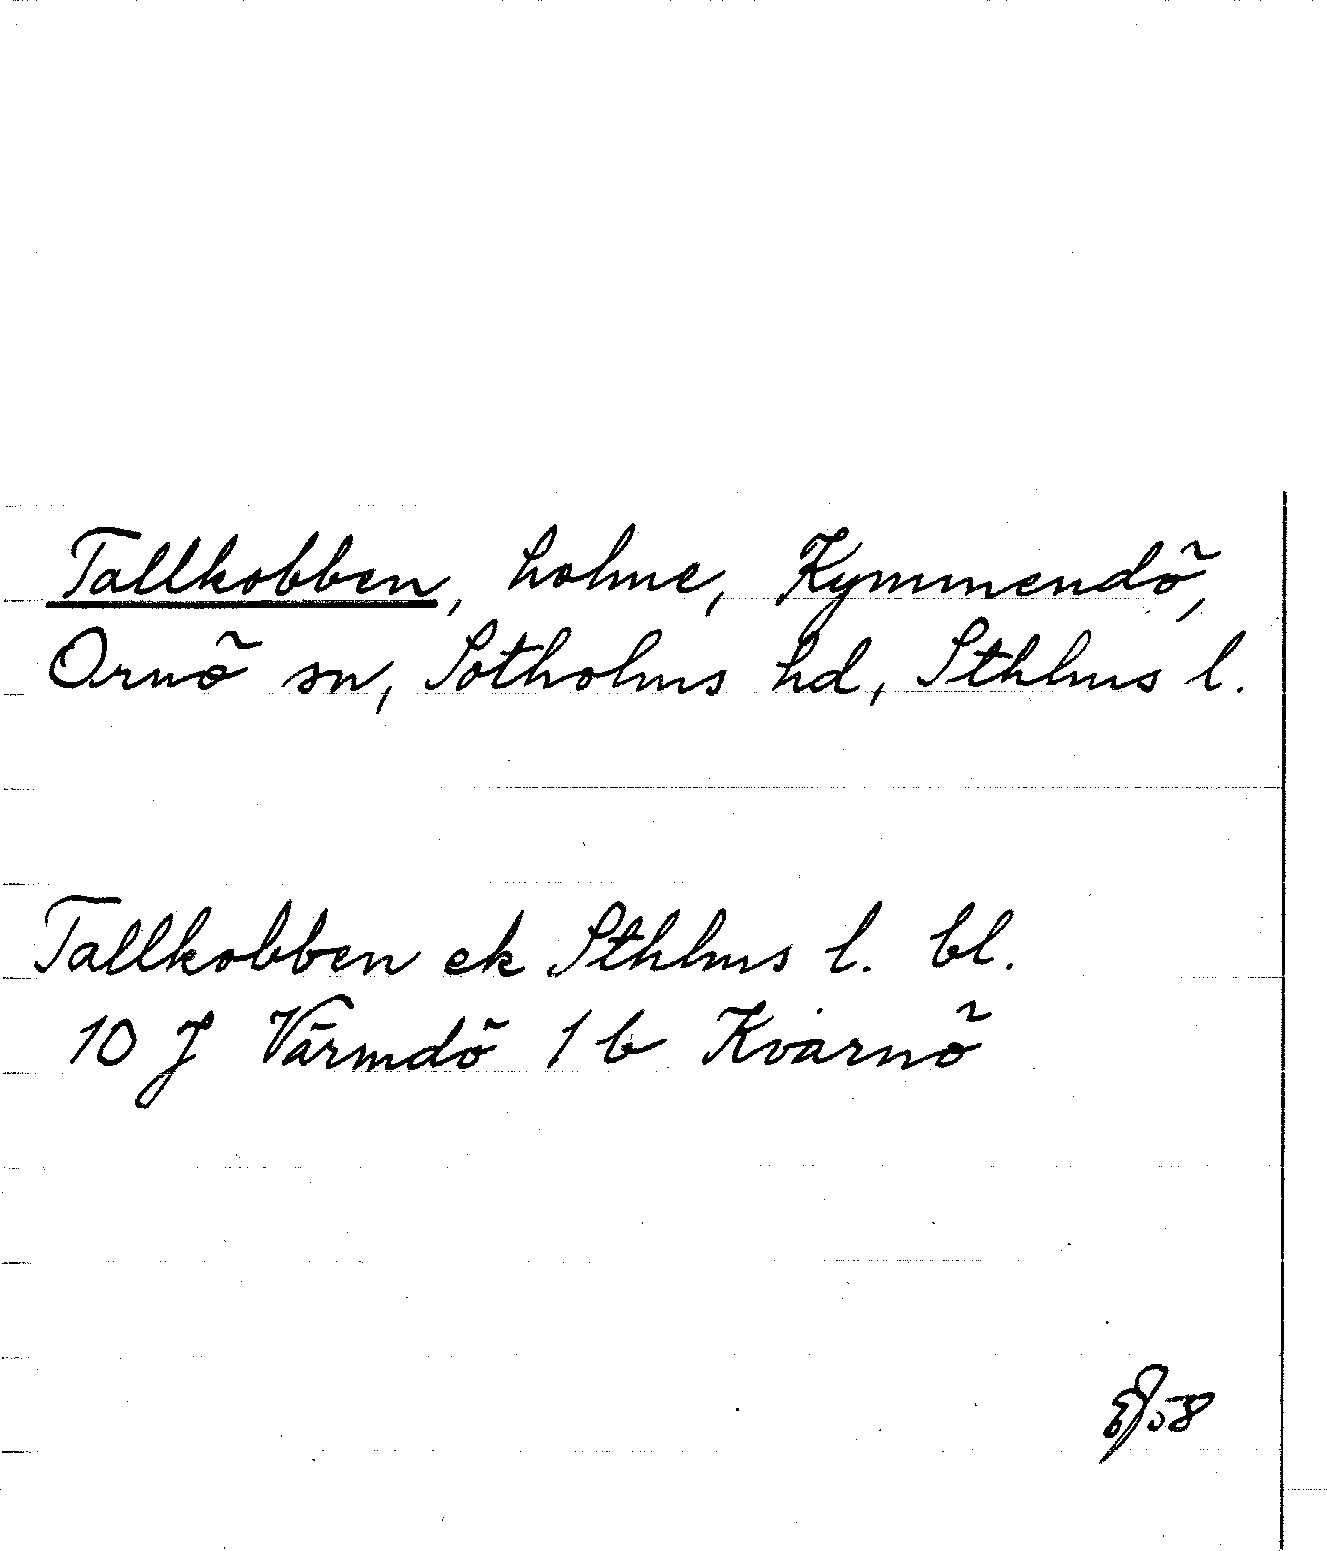 Tallkobben, holme, Kymmendö,
Ornö sn, Sotholms hd, Sthlms l.
Tallkobben ek Sthlms l. bl.
10 J Värmdö 1 b Kvarnö
58